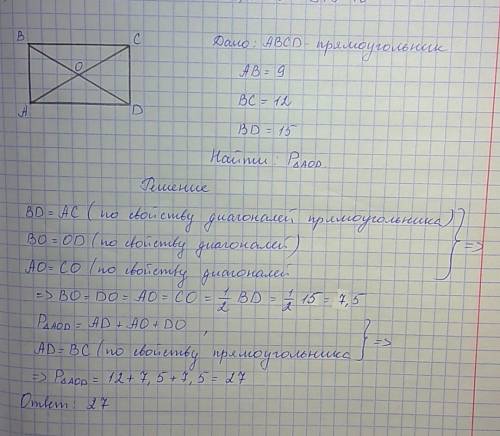 B
C
O
A
D
Дано: ABCD - прямоугольник
AB = 9
BC = 12
BD = 15
Найти: P△AOD
Решение
BD = AC (по свойству диагоналей прямоугольника)
BO = OD (по свойству диагоналей) =>
AO = CO (по свойству диагоналей
=> BO = DO = AO = CO = 1/2 BD = 1/2 15 = 7,5
P△AOD = AD + AO + DO ,
AD = BC (по свойству прямоугольника =>
=> P△AOD = 12 + 7,5 + 7,5 = 27
Ответ: 27